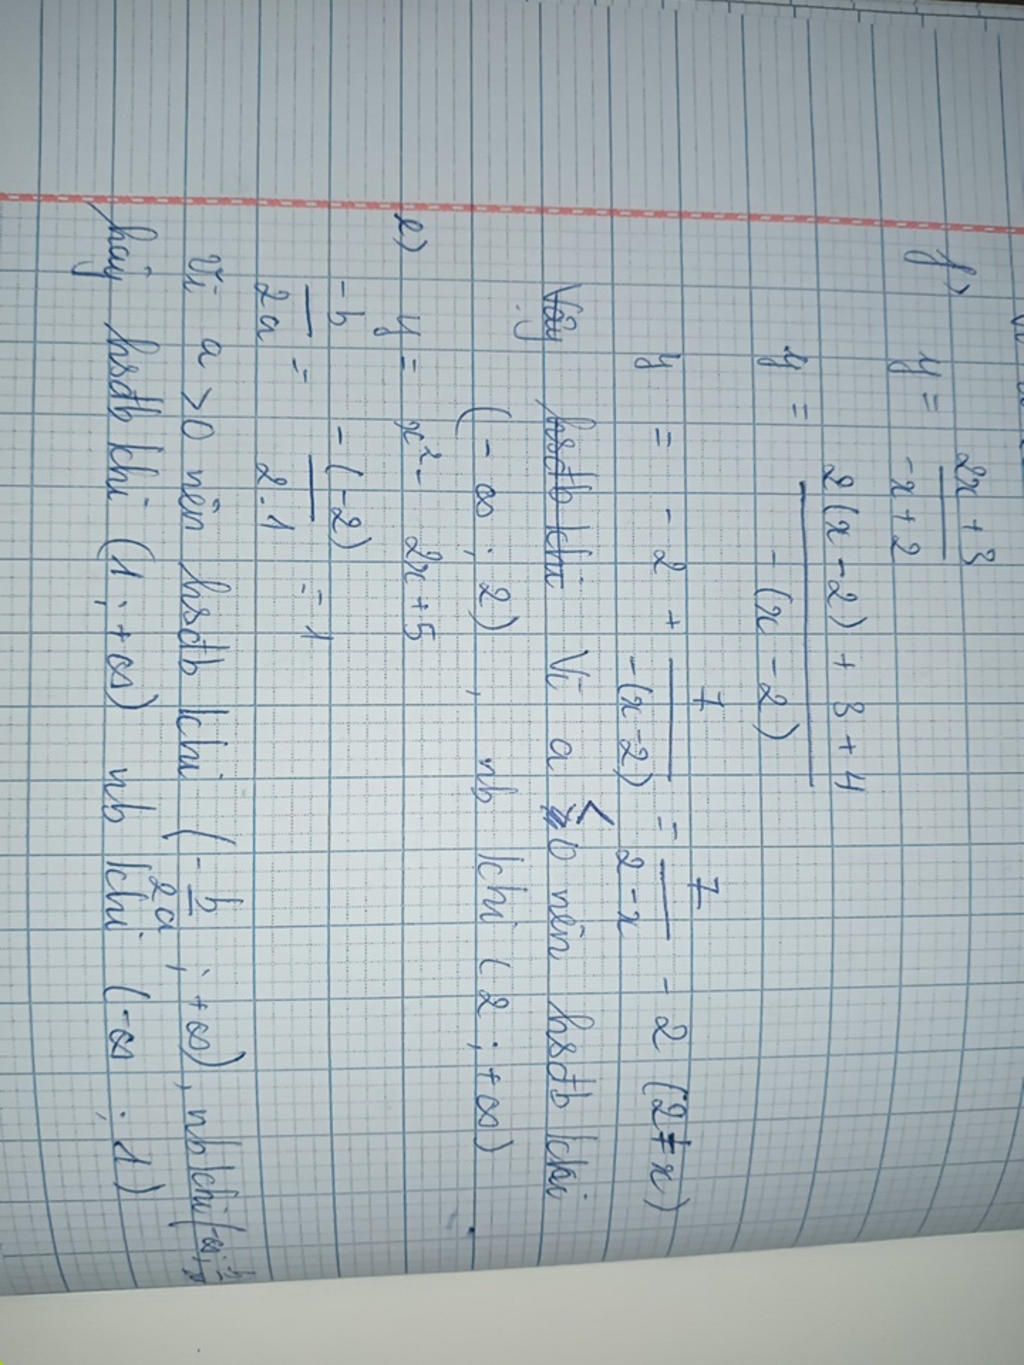 f) y = \frac{2x + 3}{-x + 2}
y = \frac{2(x - 2) + 3 + 4}{-(x - 2)}
y = -2 + \frac{7}{-(x - 2)} = \frac{7}{2 - x} - 2 (2 ≠ x)
Vậy hsđb khi Vì a < 0 nên hsđb khi
(-∞ ; 2) , nb khi (2 ; +∞)
e) y = x² - 2x + 5
\frac{-b}{2a} = \frac{-(-2)}{2.1} = 1
Vì a > 0 nên hsđb khi (-\frac{b}{2a} ; +∞), nb khi (-∞ ;
hay hsđb khi (1 ; +∞) nb khi (-∞ ; 1)